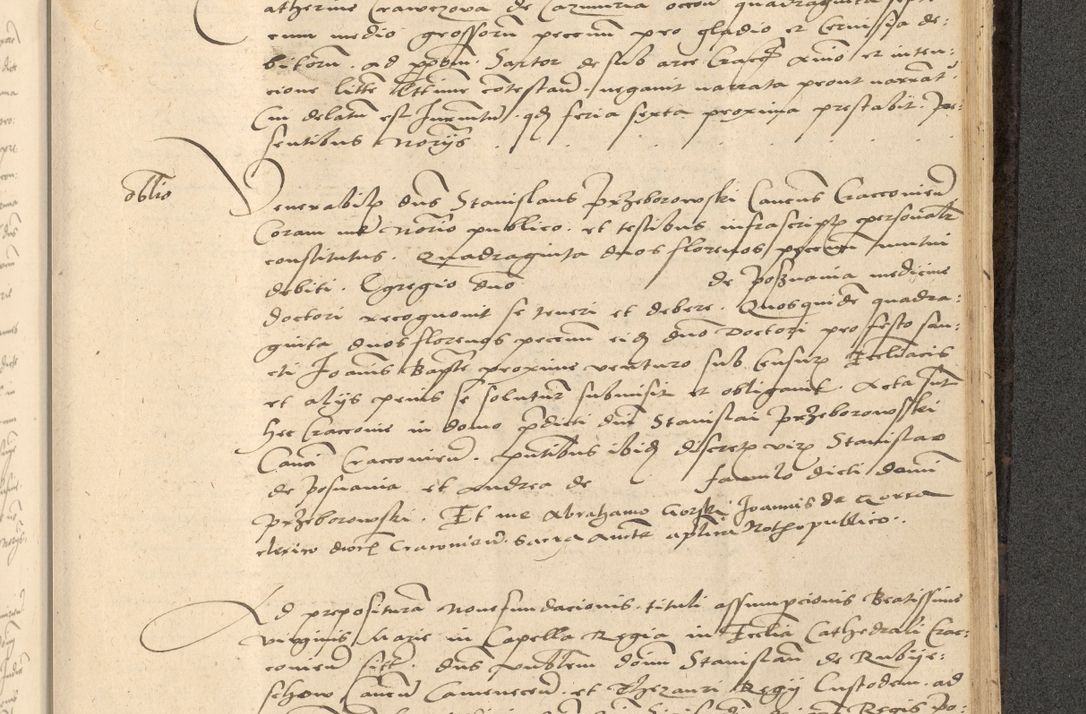 Catherine Crawczowa de Cazimiria occon quadraginta septe
cum medio grossorum peccum pro gladio et Cervisia de:
bitorum. ad ppbm. Sartor de sub arce Crace animo et inten:
cione litte lttime cotestan. negavit narrata prout narrat.
Cui delatum est Juramentum. qd feria sexta proxima prestabit. Pre:
sentibus Notorijs . . . . . .
oblio
Venerabilis dns Stanislaus Przeborowski Canonicus Cracovien
Coram me Notorio publico. et testibus infrascriptis personaliter
constitutus. Quadraginta duos florenos peccun mutui
debiti. Egregio dno de Posznania medicine
doctori recognovit se teneri et debere. Quosquidem quadra:
ginta duos florenos peccun eidem dno Doctori pro festo san:
cti Joannis Bapte proxime venturo sub Censuris Ecclicis
et alijs penis se soluturum submisit et obligavit. Acta sunt
hec Cracovie in domo pdicti dni Stanislai Przeborowski
Canci Cracovien. pntibus ibidem discretis viris Stanislao
de Posnania et Andrea de famulo dicti domini
Przeborowski. Et me Abrahamo Gorski Joannis de Gorka
clerico dioce Cracovien. Sacra aucte aplica Notorio publico.
Ad preposituram nove fundacionis tituli assumpcionis Beatissime
virginis Marie in Capella Regia in Ecclia Cathedrali Crac:
covien sitt. dns publem domin Stanislaum de Rubije:
schow Canonicum Camenecen. et Thezauri Regij Custodem. ad